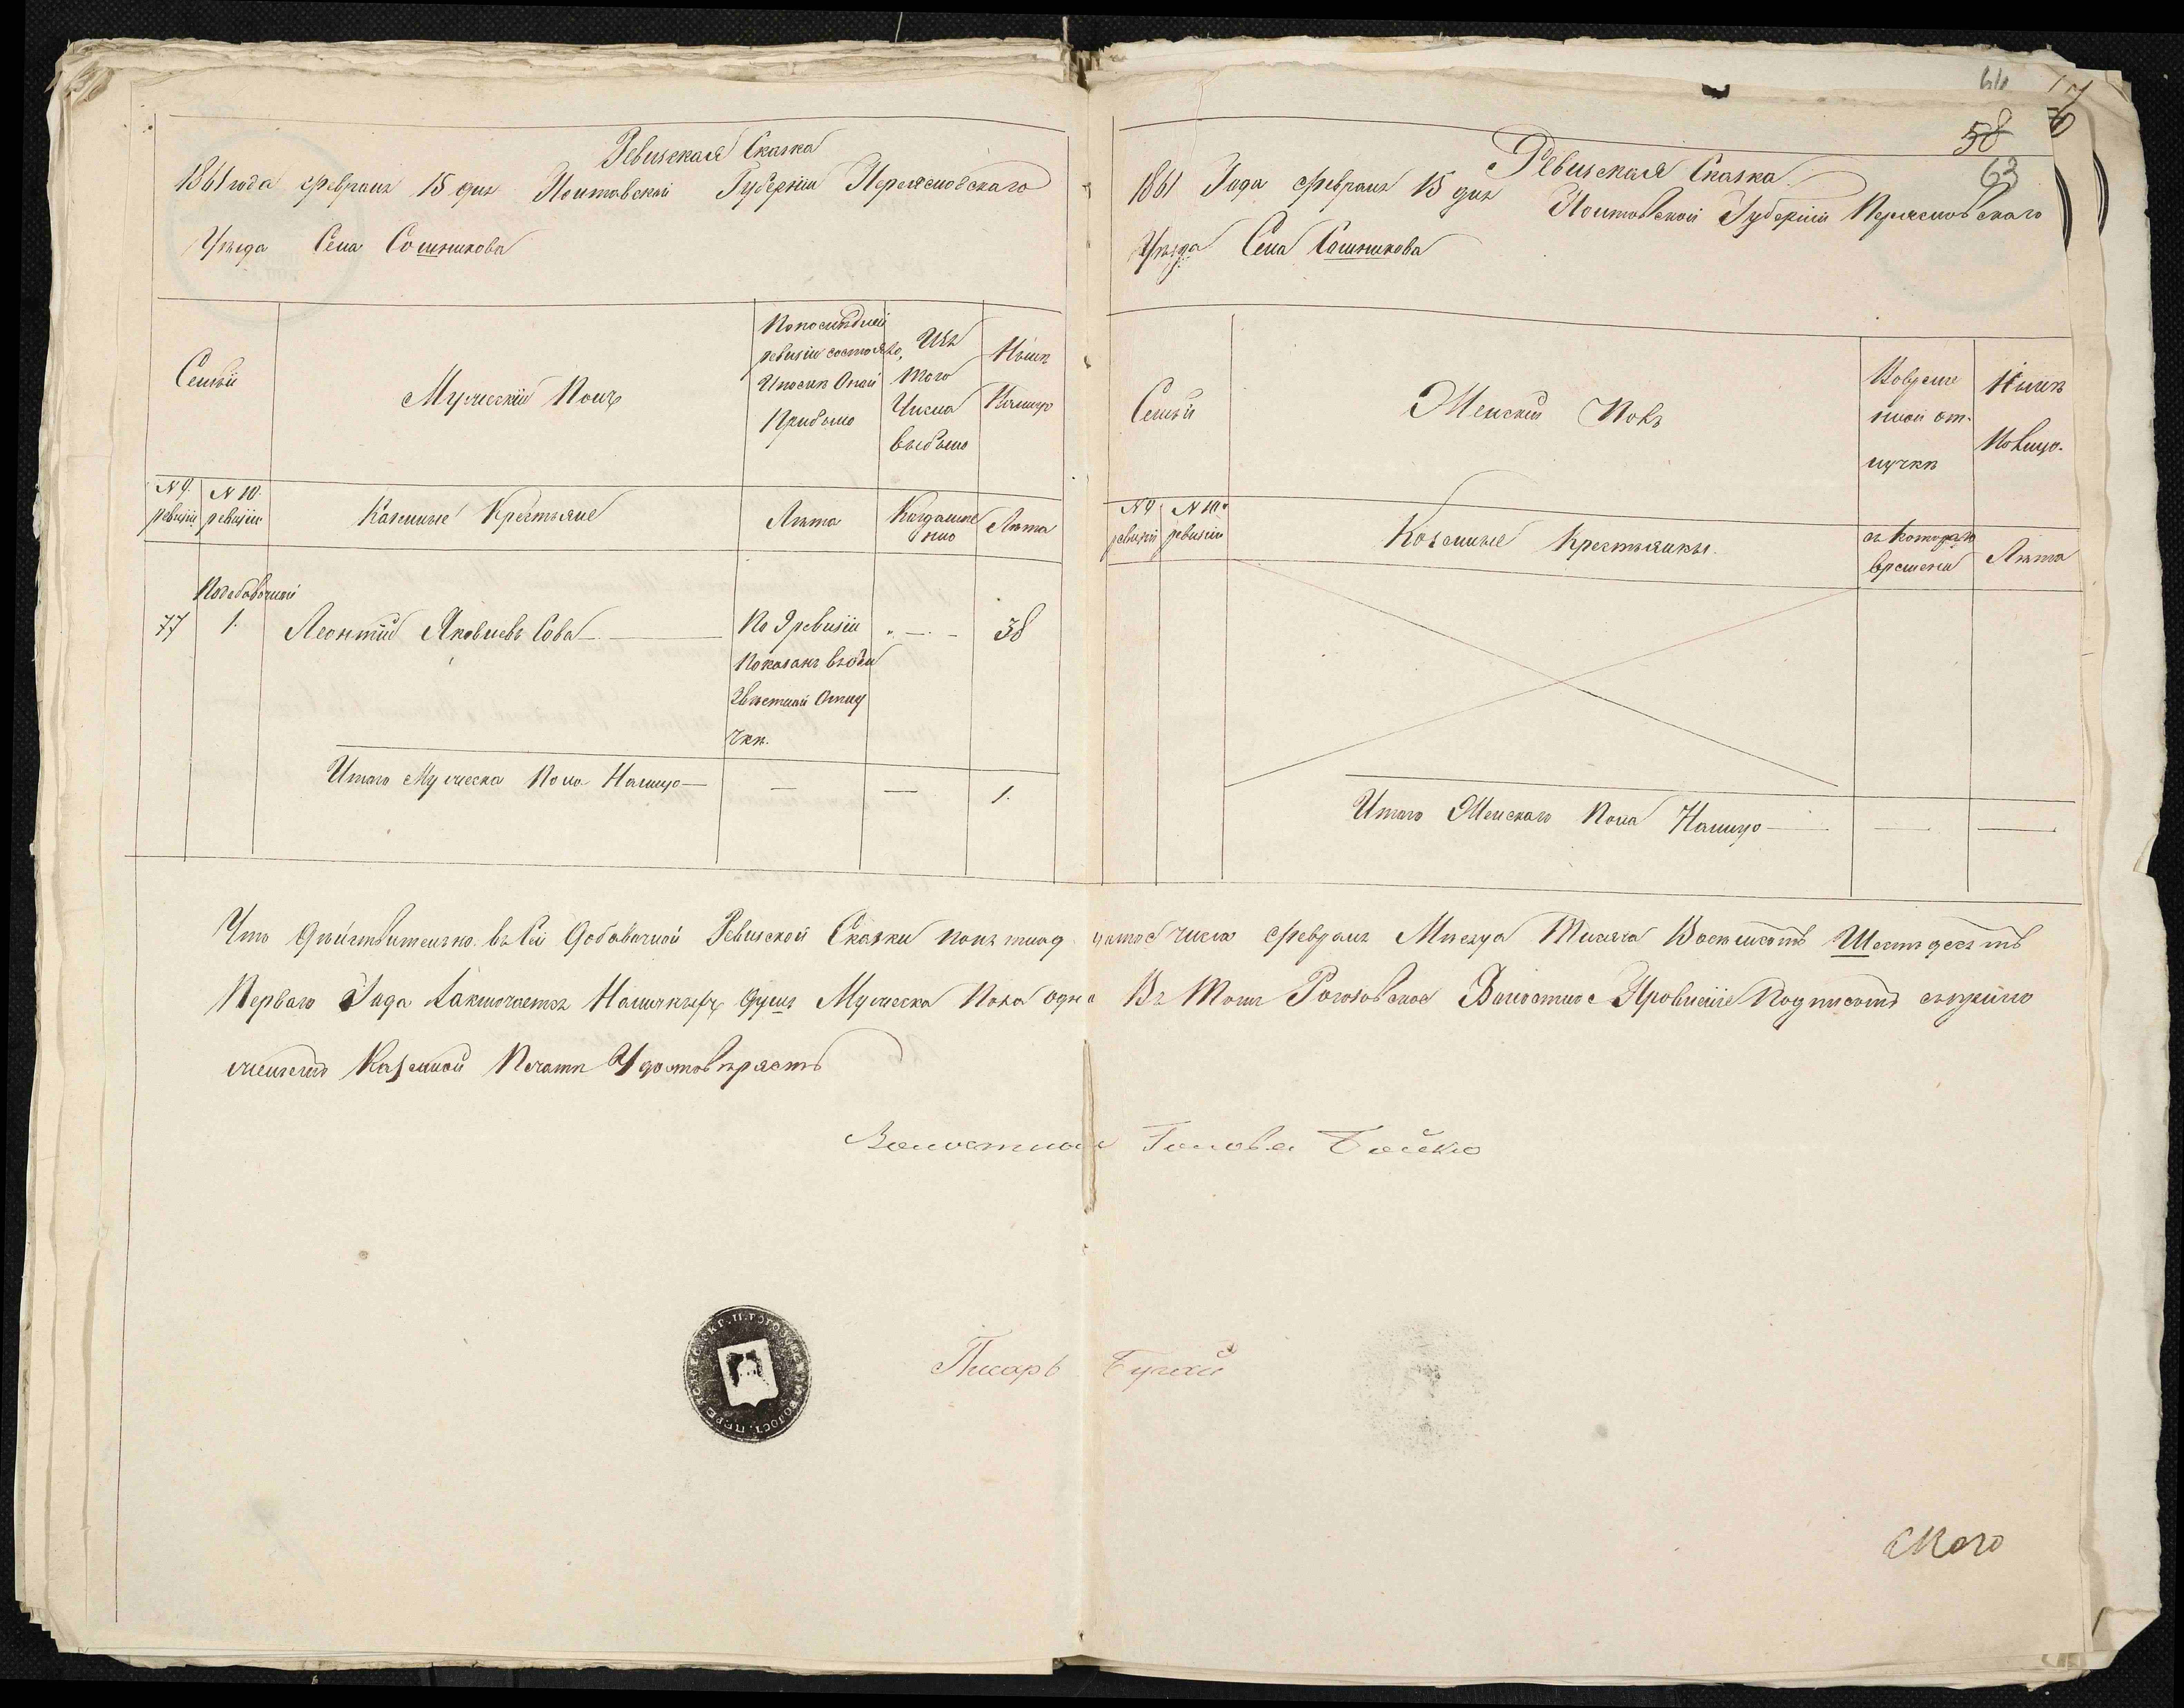 Ревизская Сказка
1861 года февраля 15 дня Полтавской Губернии Переясловскаго
Уѣзда Села Сошникова
Семьи
Мужескій Полъ
По последней
ревизіи состояло,
И после Оной
Прибыло
Изъ
того
Числа
выбыло
Нынѣ
На лицо
№ 9. ревизіи
№ 10. ревизіи
Казенные Крестьяне
Лѣта
Когда именно
Лѣта
По добавочной
77 1. Леонтій Яковлевъ Сова — По 9 ревизіи „ — - 38
Показанъ въ без
звѣстной Отлу
чкѣ.
Итого Мужеска Пола На лицо — — — 1.
64
58
63
Ревизская Сказка
1861 Года февраля 15 дня Полтовской Губерніи Переясловскаго
Уѣзда Села Сошникова
Семьи
Женскій Полъ
Вовреме
нной от-
лучкѣ
Нынѣ
На лицо.
№ 9 ревизіи
№ 10. ревизіи
Козенные Крестьянки.
съ Которого
времени
Лѣта
Итого Женскаго Пола На лицо — — —
Что дѣйствительно въ Сей Добавочной Ревизской Сказки попѣтнадцатое число февраля Мѣсяца Тисяча Восемьсотъ Шестдесятъ
Перваго Года Заключается Наличныхъ душъ Мужеска Пола одна Въ Томъ Рогозовское Волостное Провленіе Подписомъ съприло
женіемъ Казенной Печати Удостовѣряетъ
Волостной Голова Бойко
Писарь
ского